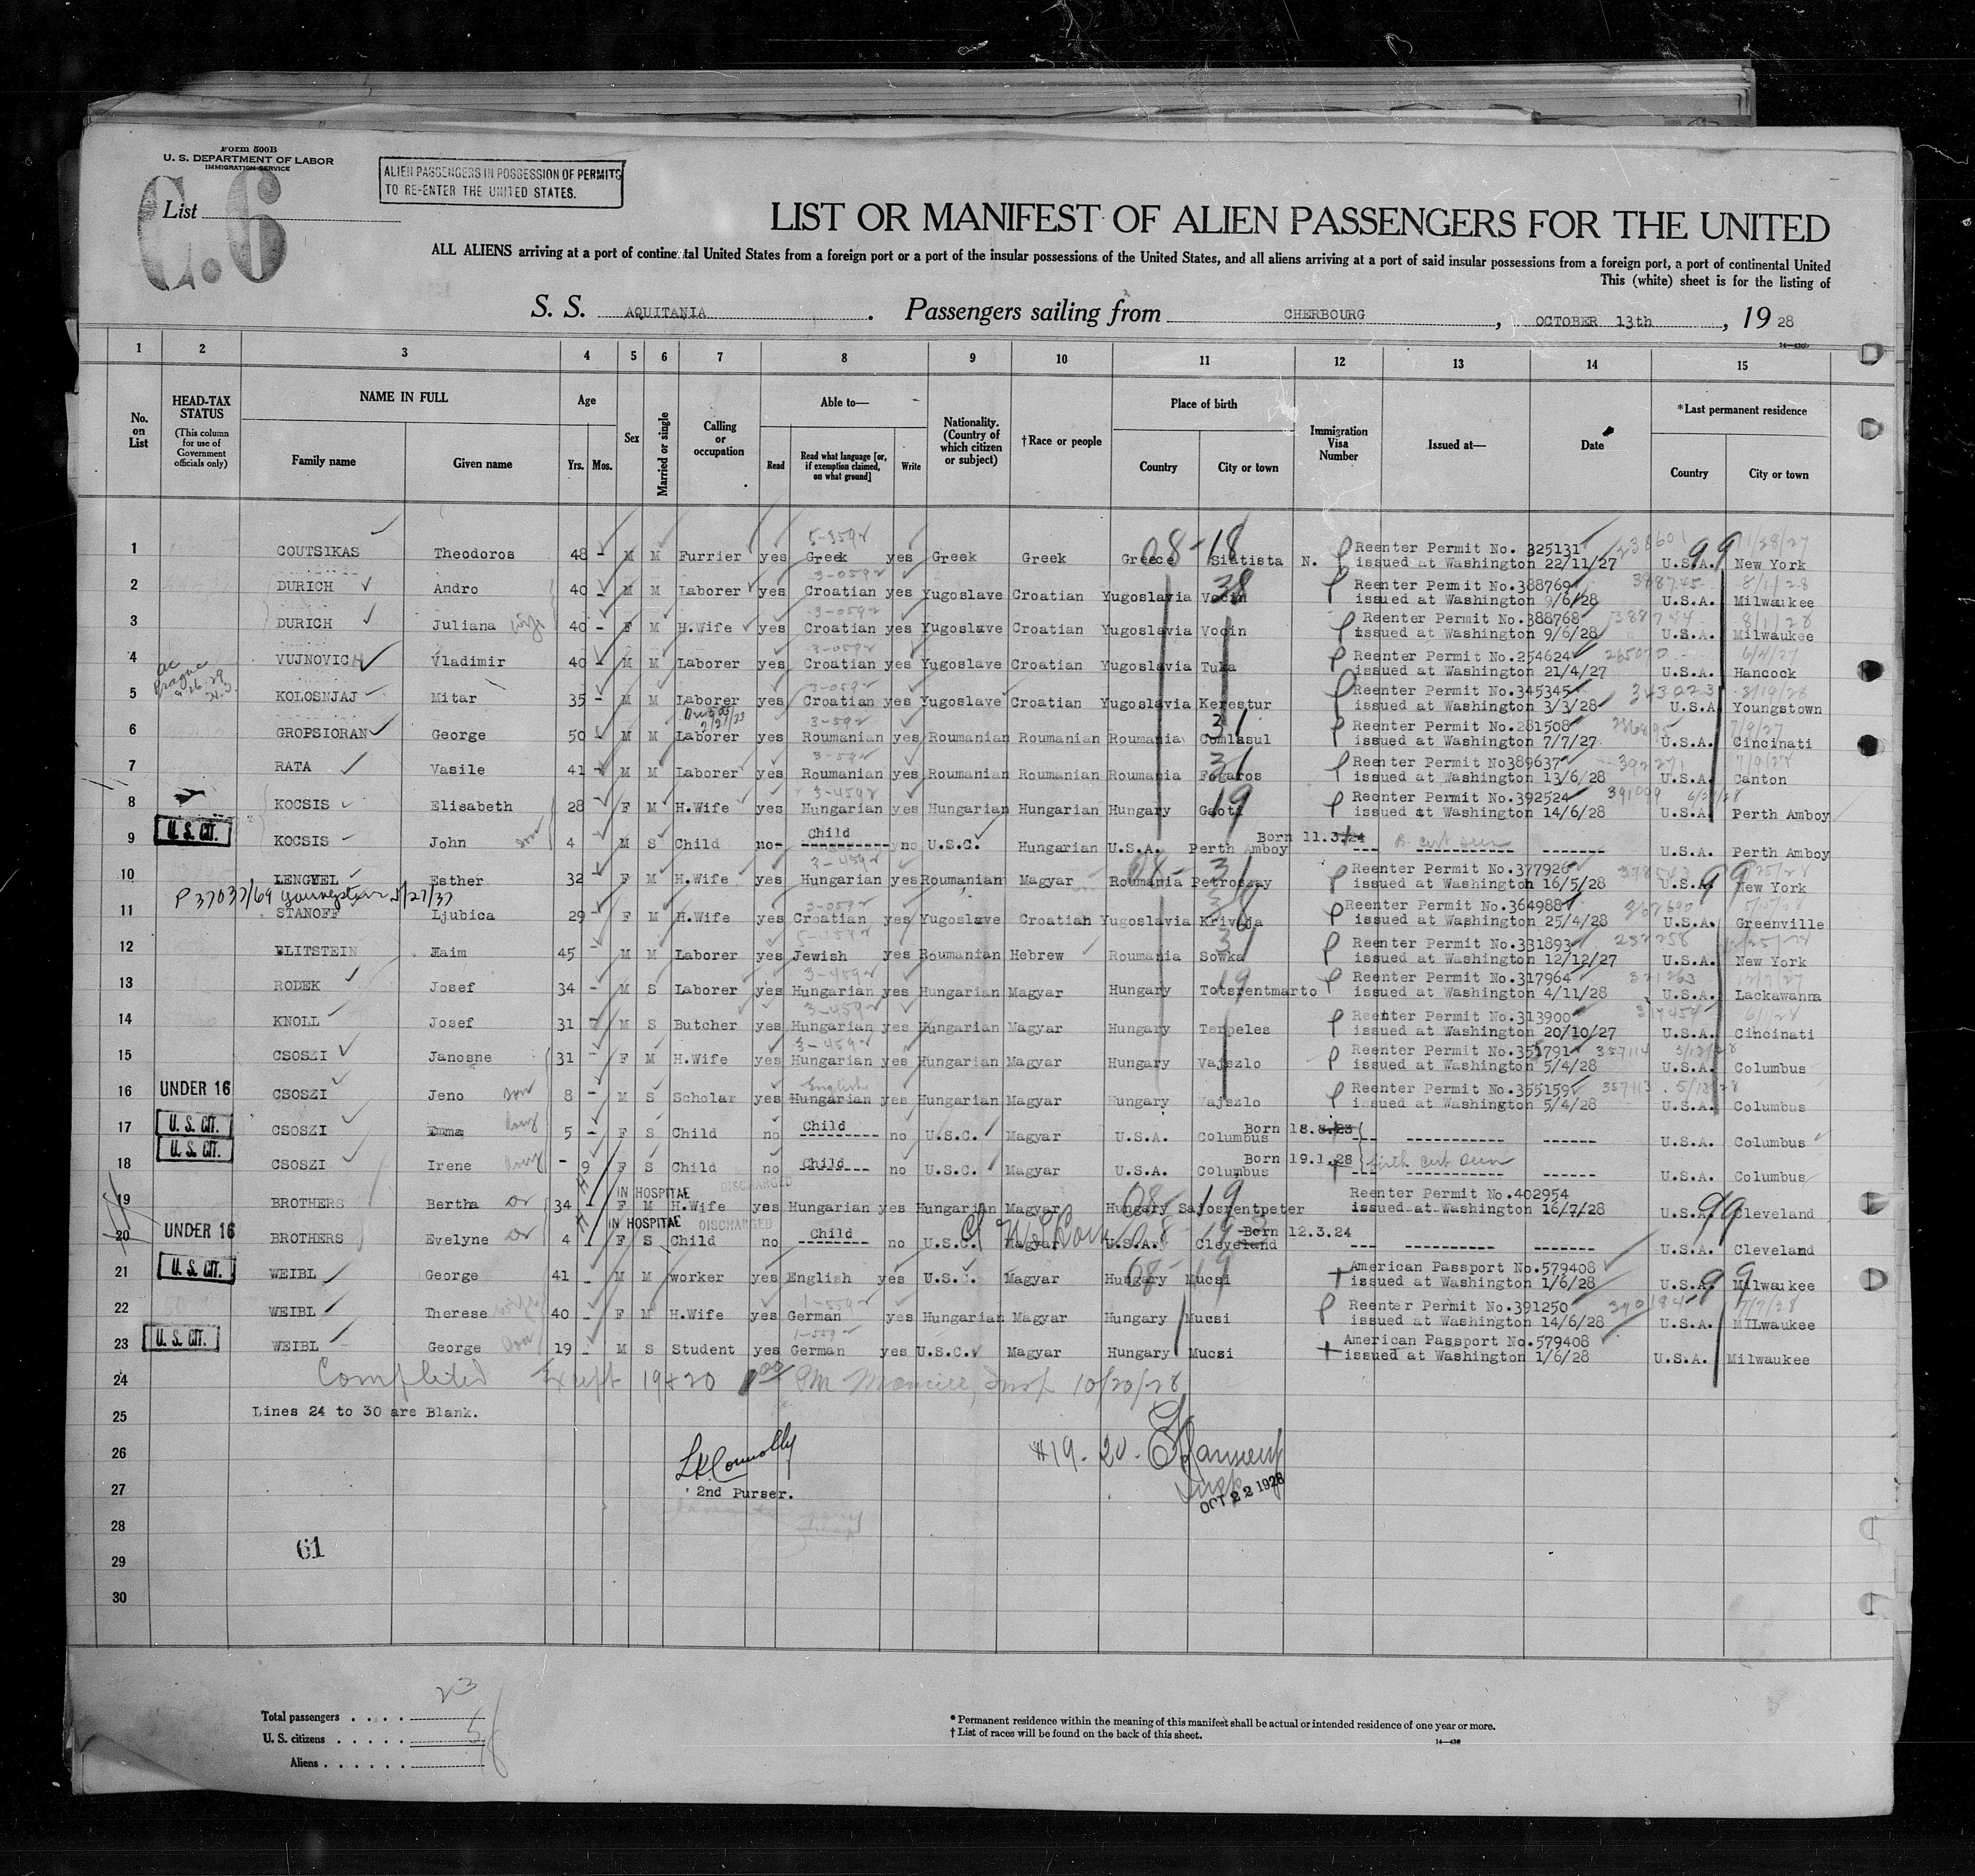 Form 500B
U. S. DEPARTMENT OF LABOR
IMMIGRATION SERVICE
ALIEN PASSENGERS IN POSSESSION OF PERMITS
TO RE-ENTER THE UNITED STATES.
List
C.6
LIST OR MANIFEST OF ALIEN PASSENGERS FOR THE UNITED
ALL ALIENS arriving at a port of continental United States from a foreign port or a port of the insular possessions of the United States, and all aliens arriving at a port of said insular possessions from a foreign port, a port of continental United
This (white) sheet is for the listing of
S. S. AQUITANIA. Passengers sailing from CHERBOURG, OCTOBER 13th, 19 28
1 2 3 4 5 6 7 8 9 10 11 12 13 14 15
No. on List
HEAD-TAX STATUS (This column for use of Government officials only)
NAME IN FULL Family name Given name
Age Yrs. Mos.
Sex
Married or single
Calling or occupation
Able to— Read Read what language [or, if exemption claimed, on what ground] Write
Nationality. (Country of which citizen or subject)
†Race or people
Place of birth Country City or town
Immigration Visa Number
Issued at—
Date
*Last permanent residence Country City or town
1 COUTSIKAS Theodoros 48 - M M Furrier yes Greek yes Greek Greek Greece Siatista N. Reenter Permit No. 325131 issued at Washington 22/11/27 U.S.A. New York
2 DURICH Andro 40 - M M Laborer yes Croatian yes Yugoslave Croatian Yugoslavia Vocin Reenter Permit No.388769 issued at Washington 9/6/28 U.S.A. Milwaukee
3 DURICH Juliana wife 40 - F M H.Wife yes Croatian yes Yugoslave Croatian Yugoslavia Vocin Reenter Permit No.388768 issued at Washington 9/6/28 U.S.A. Milwaukee
4 VUJNOVICH Vladimir 40 - M M Laborer yes Croatian yes Yugoslave Croatian Yugoslavia Tuka Reenter Permit No.254624 issued at Washington 21/4/27 U.S.A. Hancock
5 KOLOSNJAJ Mitar 35 - M M Laborer yes Croatian yes Yugoslave Croatian Yugoslavia Kerestur Reenter Permit No.345345 issued at Washington 3/3/28 U.S.A. Youngstown
6 GROPSIORAN George 50 - M M Laborer yes Roumanian yes Roumanian Roumanian Roumania Comlasul Reenter Permit No.281508 issued at Washington 7/7/27 U.S.A. Cincinati
7 RATA Vasile 41 - M M Laborer yes Roumanian yes Roumanian Roumanian Roumania Reenter Permit No389637 issued at Washington 13/6/28 U.S.A. Canton
8 KOCSIS Elisabeth 28 F M H.Wife yes Hungarian yes Hungarian Hungarian Hungary Reenter Permit No.392524 issued at Washington 14/6/28 U.S.A. Perth Amboy
9 U. S. CIT. KOCSIS John son 4 M S Child no Child no U.S.C. Hungarian U.S.A. Perth Amboy Born 11.3.24 U.S.A. Perth Amboy
10 LENGYEL Esther 32 - F M H.Wife yes Hungarian yes Roumanian Magyar Roumania Petroszay Reenter Permit No.377926 issued at Washington 16/5/28 U.S.A. New York
11 STANOFF Ljubica 29 F M H.Wife yes Croatian yes Yugoslave Croatian Yugoslavia Krivaja Reenter Permit No.364988 issued at Washington 25/4/28 U.S.A. Greenville
12 BLITSTEIN Haim 45 M M Laborer yes Jewish yes Roumanian Hebrew Roumania Sowka Reenter Permit No.331893 issued at Washington 12/12/27 U.S.A. New York
13 RODEK Josef 34 - M S Laborer yes Hungarian yes Hungarian Magyar Hungary Totsrentmarto Reenter Permit No.317964 issued at Washington 4/11/28 U.S.A. Lackawanna
14 KNOLL Josef 31 - M S Butcher yes Hungarian yes Hungarian Magyar Hungary Terpeles Reenter Permit No.313900 issued at Washington 20/10/27 U.S.A. Cincinati
15 CSOSZI Janosne 31 F M H.Wife yes Hungarian yes Hungarian Magyar Hungary Vajszlo Reenter Permit No.351791 issued at Washington 5/4/28 U.S.A. Columbus
16 UNDER 16 CSOSZI Jeno son 8 - M S Scholar yes English Hungarian yes Hungarian Magyar Hungary Vajszlo Reenter Permit No.355159 issued at Washington 5/4/28 U.S.A. Columbus
17 U. S. CIT. CSOSZI Emma 5 - F S Child no Child no U.S.C. Magyar U.S.A. Columbus Born 18.8.23 U.S.A. Columbus
18 U. S. CIT. CSOSZI Irene - 9 F S Child no Child no U.S.C. Magyar U.S.A. Columbus Born 19.1.28 birth cert seen U.S.A. Columbus
IN HOSPITAL DISCHARGED
19 BROTHERS Bertha 34 - F M H.Wife yes Hungarian yes Hungarian Magyar Hungary Sajosrentpeter Reenter Permit No.402954 issued at Washington 16/7/28 U.S.A. Cleveland
IN HOSPITAL DISCHARGED
20 UNDER 16 BROTHERS Evelyne 4 - F S Child no Child no U.S.C. Magyar U.S.A. Cleveland Born 12.3.24 U.S.A. Cleveland
21 U. S. CIT. WEIBL George 41 - M M worker yes English yes U.S.C. Magyar Hungary Mucsi American Passport No.579408 issued at Washington 1/6/28 U.S.A. Milwaukee
22 WEIBL Therese wife 40 - F M H.Wife yes German yes Hungarian Magyar Hungary Mucsi Reenter Permit No.391250 issued at Washington 14/6/28 U.S.A. MILwaukee
23 U. S. CIT. WEIBL George son 19 - M S Student yes German yes U.S.C. Magyar Hungary Mucsi American Passport No.579408 issued at Washington 1/6/28 U.S.A. Milwaukee
24 Completed Except 19 & 20 Insp 10/20/28
25 Lines 24 to 30 are Blank.
26 #19 - 20 -
L.K.Connolly
27 2nd Purser. Insp OCT 22 1928
28
29 61
30
23
Total passengers
U. S. citizens 5
Aliens
* Permanent residence within the meaning of this manifest shall be actual or intended residence of one year or more.
† List of races will be found on the back of this sheet.